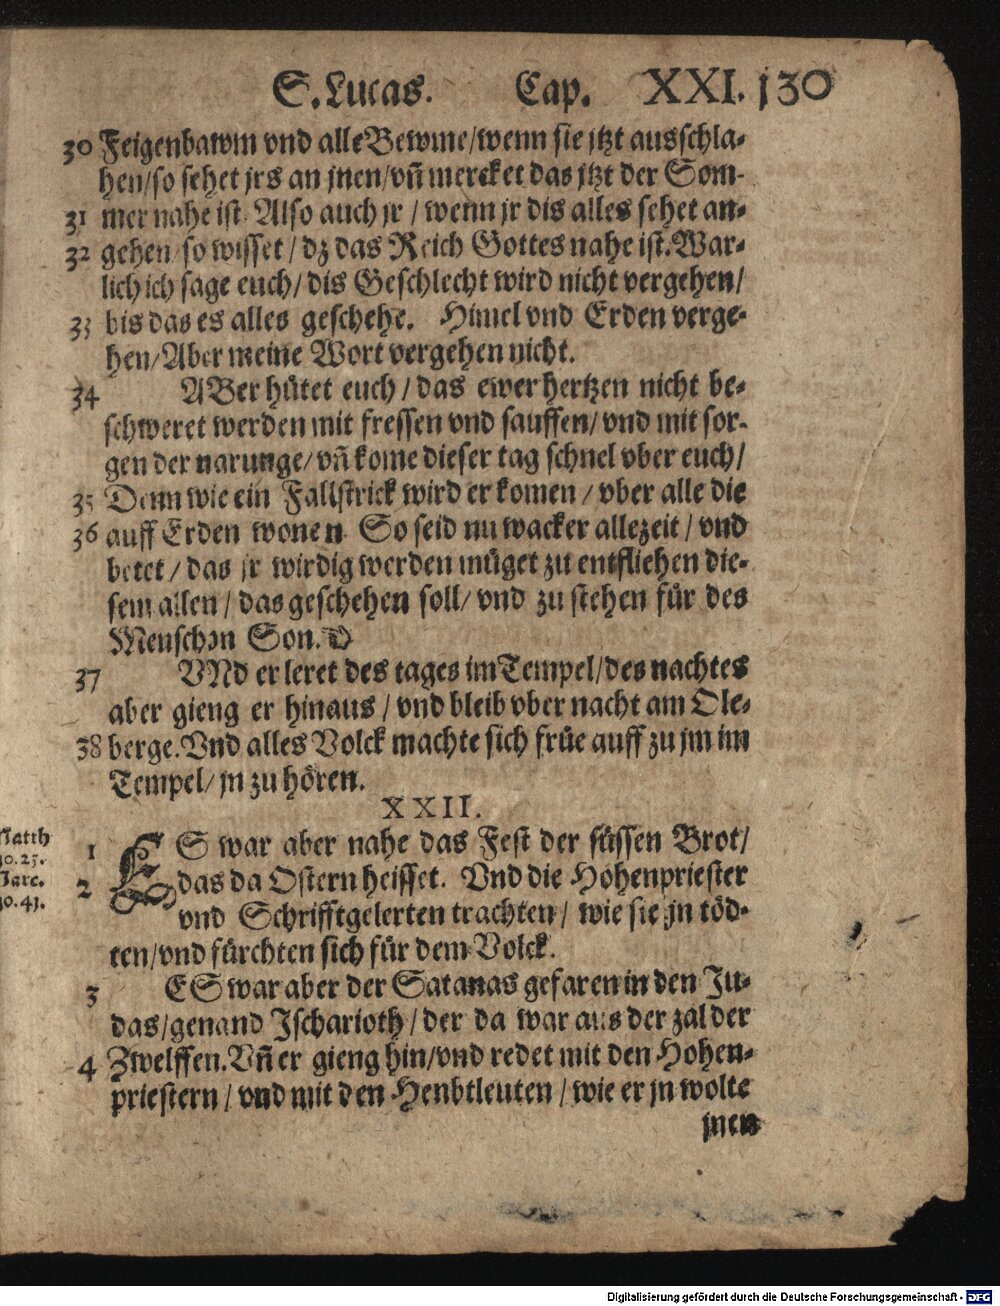 S. Lucas. Cap. XXI. 130
30 Feigenbawm vnd alle Bewme/wenn sie jtzt ausschla-
hen/so sehet jrs an jnen/vñ mercket das jtzt der Som-
31 mer nahe ist. Also auch jr / wenn jr dis alles sehet an-
32 gehen/so wisset / dz das Reich Gottes nahe ist. War-
lich ich sage euch/ dis Geschlecht wird nicht vergehen/
33 bis das es alles geschehe. Himel vnd Erden verge-
hen/Aber meine Wort vergehen nicht.
34 ABer hütet euch / das ewer hertzen nicht be-
schweret werden mit fressen vnd sauffen/ vnd mit sor-
gen der narunge/ vñ kome dieser tag schnel vber euch/
35 Denn wie ein Fallstrick wird er komen / vber alle die
36 auff Erden wonen. So seid nu wacker allezeit / vnd
betet / das jr wirdig werden müget zu entfliehen die-
sem allen / das geschehen soll/ vnd zu stehen für des
Menschen Son.
37 VNd er leret des tages im Tempel/des nachtes
aber gieng er hinaus / vnd bleib vber nacht am Ole-
38 berge. Vnd alles Volck machte sich früe auff zu jm im
Tempel/ jn zu hören.
XXII.
Matth
20.25.
Marc.
20.41.
1 ES war aber nahe das Fest der süssen Brot/
2 das da Ostern heisset. Vnd die Hohenpriester
vnd Schrifftgelerten trachten / wie sie jn töd-
ten/vnd fürchten sich für dem Volck.
3 ES war aber der Satanas gefaren in den Ju-
das/genand Jscharioth / der da war aus der zal der
4 Zwelffen. Vñ er gieng hin/vnd redet mit den Hohen-
priestern / vnd mit den Heubtleuten / wie er jn wolte
jnen
Digitalisierung gefördert durch die Deutsche Forschungsgemeinschaft - DFG